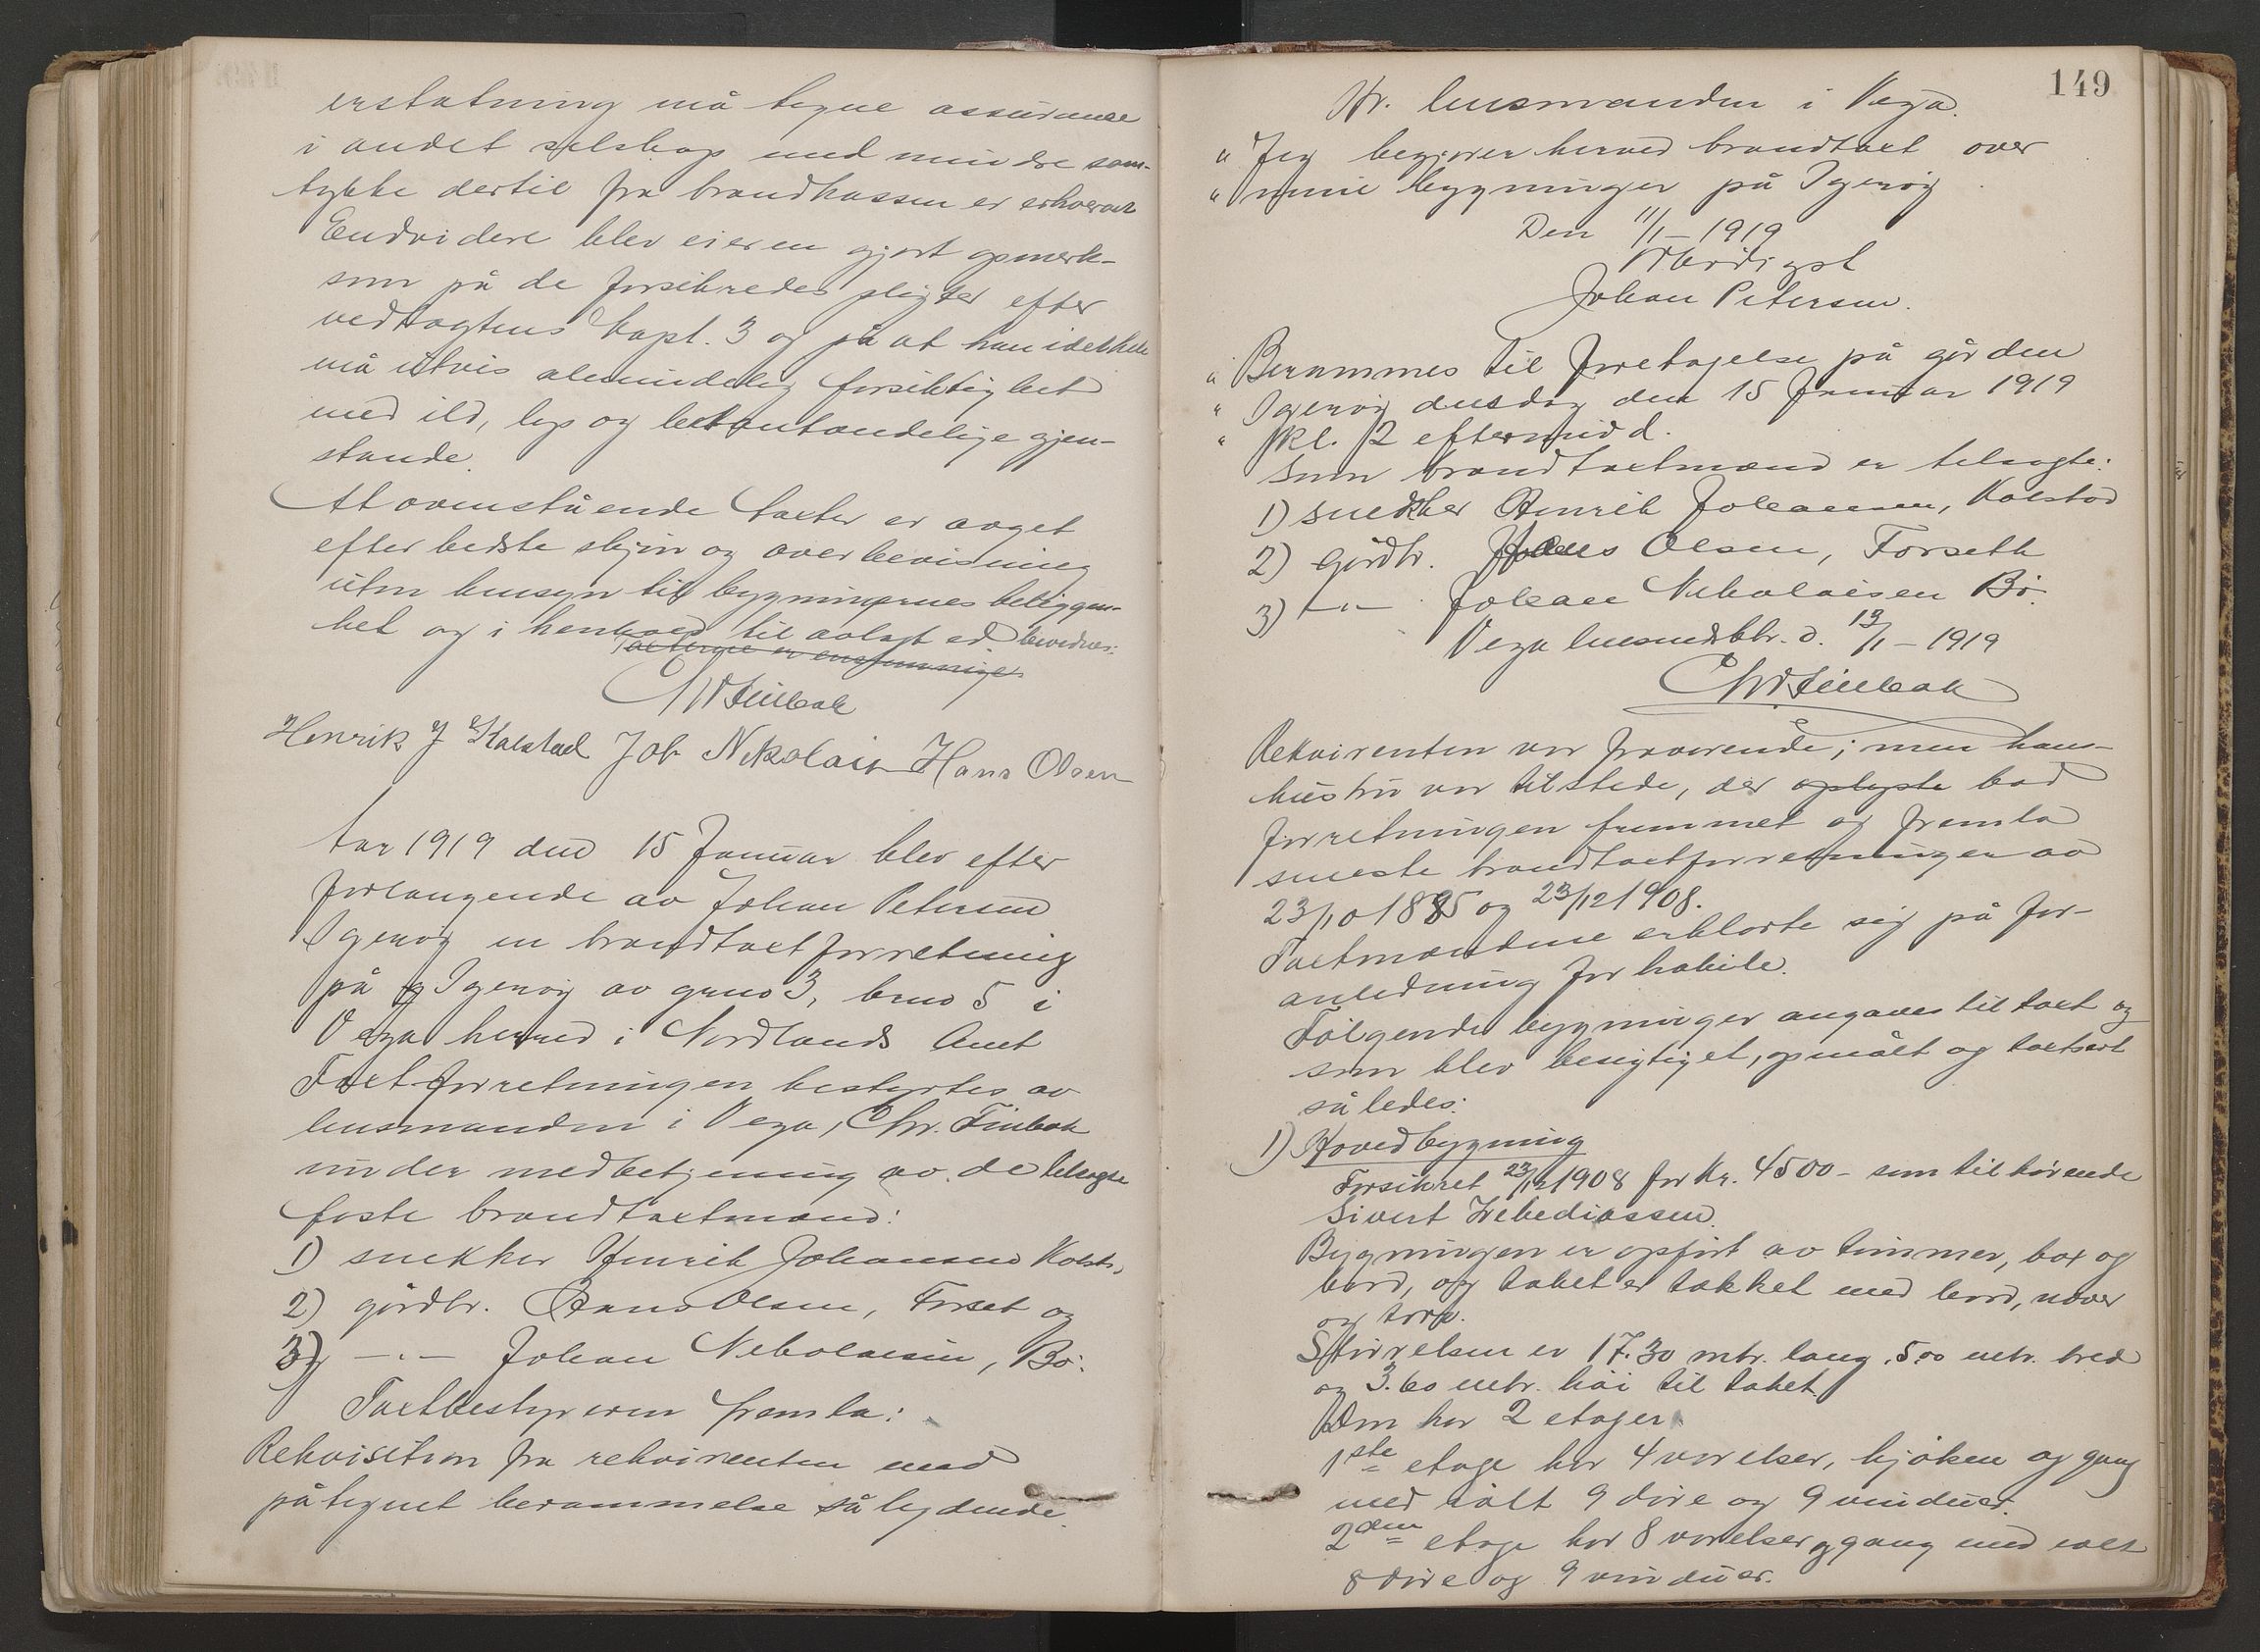 erstatning må tegne assurance
i andet selskap med mindre sam-
tykke dertil fra brandkassen er erhvervet
Endvidere blev eieren gjort opmerk-
som på de forsikredes pligter efter
vedtægtens kapt. 3 og på at han idethele
må utvis almindelig forsiktighet
med ild, lys og letantændelige gjen-
stande.
At ovenstående takster er avget
efter bedste skjøn og overbevisning
uten hensyn til bygningernes beliggen-
het og i henhold til avlagt ed bevidnes:
Taxterne er enstemmige
Chr Finbak
Henrik J Kalstad Joh Nikolais Hans Olsen
Aar 1919 den 15 Januar blev efter
forlangende av Johan Petersen
Igerøy en brandtaxtforretning
på Igerøy av gno 3, bno 5 i
Vega herred i Nordlands Amt
Taxtforretningen bestyrtes av
lensmanden i Vega, Chr. Finbak
under medbetjening av de tilsagte
faste brandtaxtmænd:
1) snekker Henrik Johansen Kalst,
2) gårdbr. Hans Olsen, Forset og
3) -"- Johan Nikolaisen, Bø.
Taxtbestyreren fremla:
Rekvisition fra rekvirenten med
påtegnet berammelse sålydende.
149
Hr. lensmanden i Vega.
" Jeg begjærer herved brandtaxt over
" mine bygninger på Igerøy
Den 11/1 - 1919
Ærbødigst
Johan Petersen.
" Berammes til foretagelse på gården
" Igerøy onsdag den 15 Januar 1919
" kl. 12 eftermidd.
Som brandtaxtmænd er tilsagte:
1) snekker Henrik Johansen, Kalstad
2) gårdbr. Hans Olsen, Forseth
3) -"- Johan Nikolaisen Bø.
Vega lensmdsktr. d. 13/1 - 1919
Chr Finbak
Rekvirenten var fraværende; men hans
hustru var tilstede, der oplyste bad
forretningen fremmet og fremla
seneste brandtaxtforretninger av
23/10 1895 og 23/12 1908.
Taxtmændene erklærte sig på for-
anledning for habile.
Følgende bygninger angaves til taxt og
som blev besigtiget, opmålt og taxtsert
således:
1) Hovedbygning
Forsikret 23/12 1908 for Kr. 4500 - som tilhørende
Sivert Zebediassen.
Bygningen er opført av tømmer, box og
bord, og taket er tækket med bord, næver
og torv.
Størrelsen er 17.30 mtr. lang, 5.00 mtr. bred
og 3.60 mtr. høi til taket.
Den har 2 etager.
1ste etage har 4 værelser, kjøken og gang
med ialt 9 døre og 9 vinduer.
2den etage har 8 værelser og gang med ialt
8 døre og 9 vinduer.